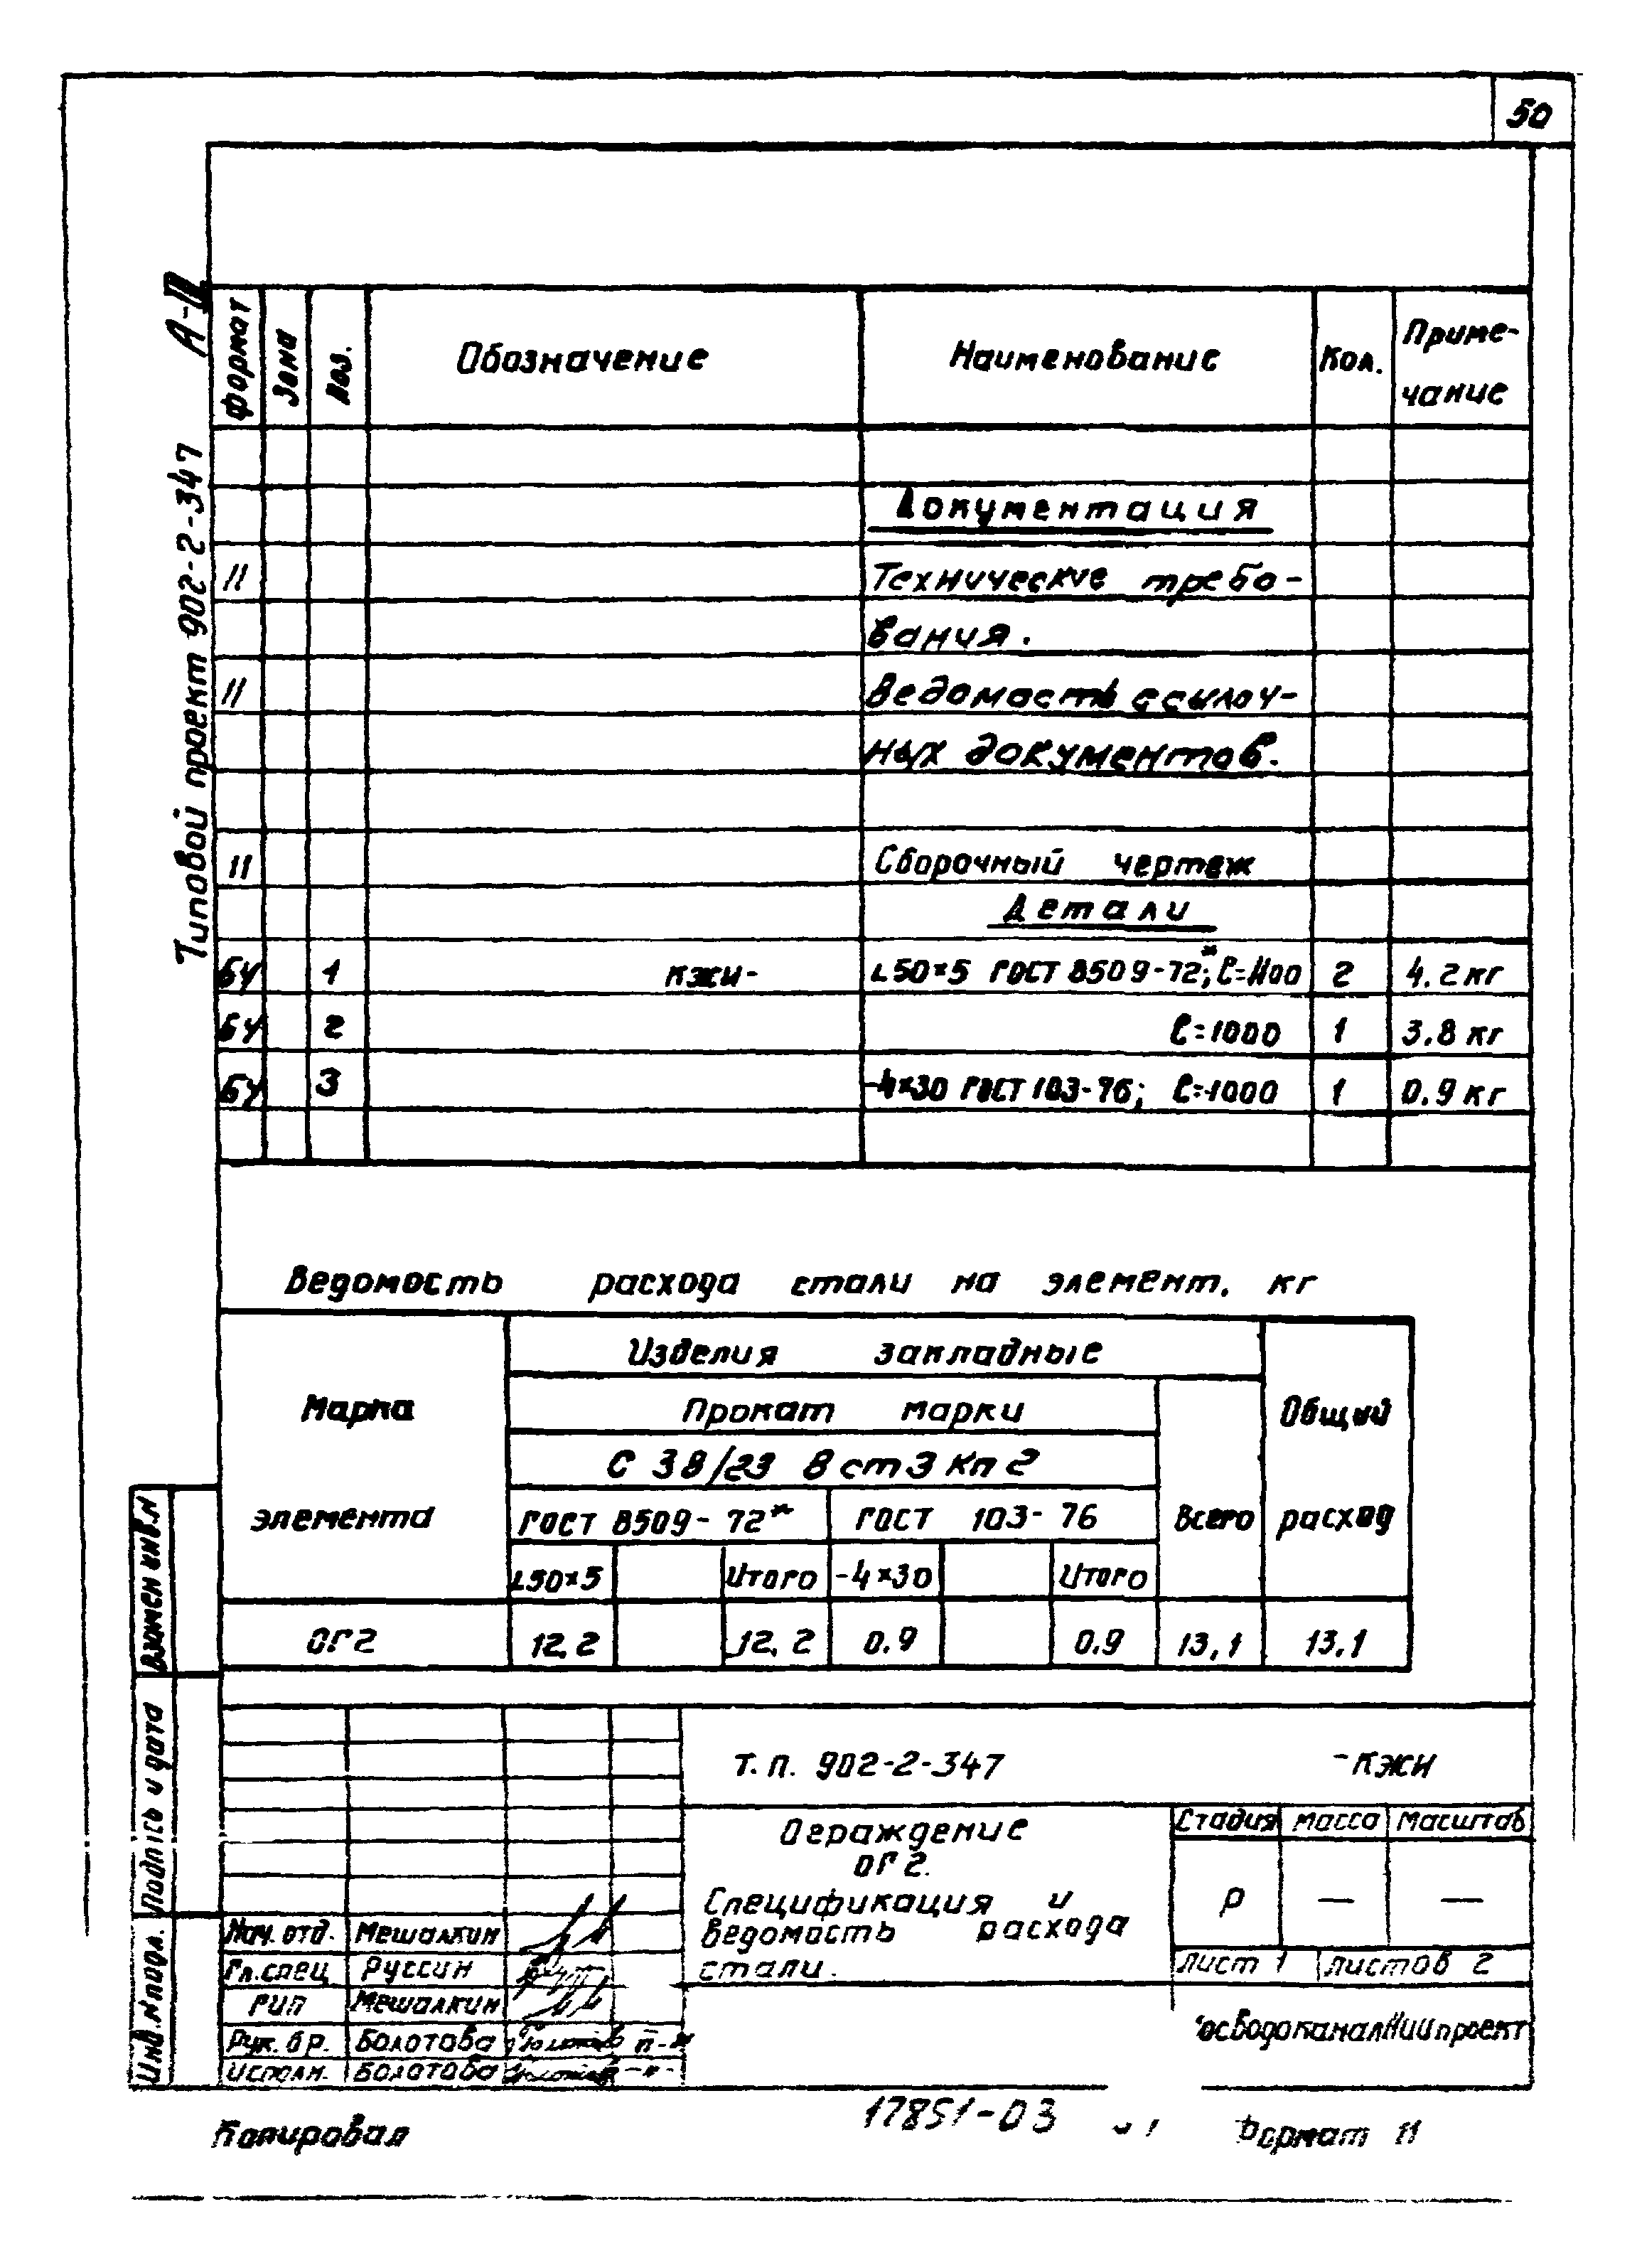 50
Типовой проект 902-2-347 А-II
Формат Зона Поз. Обозначение Наименование Кол. Приме-
чание
Документация
11 Технические требо-
вания.
11 Ведомость ссылоч-
ных документов.
11 Сборочный чертеж
Детали
БЧ 1 КЖИ- L50×5 ГОСТ 8509-72*; ℓ=1100 2 4.2 кг
БЧ 2 ℓ=1000 1 3.8 кг
БЧ 3 -4×30 ГОСТ 103-76; ℓ=1000 1 0.9 кг
Ведомость расхода стали на элемент. кг
Марка
элемента
Изделия закладные
Общий
расход
Прокат марки
Всего
С 38/23 В ст 3 кп 2
ГОСТ 8509-72* ГОСТ 103-76
L50×5 Итого -4×30 Итого
ОГ2 12.2 12.2 0.9 0.9 13,1 13.1
Взамен инв.N
Подпись и дата
Инв.N подл.
т.п. 902-2-347 -КЖИ
Ограждение
ОГ2.
Спецификация и
ведомость расхода
стали.
Стадия Масса Масштаб
Р — —
Лист 1 Листов 2
Нач. отд. Мешалкин
Гл.спец Руссин
ГИП Мешалкин
Рук. бр. Болотова
Исполн. Болотова
осВодоканалНИИпроект
Копировал 17851-03 Формат 11